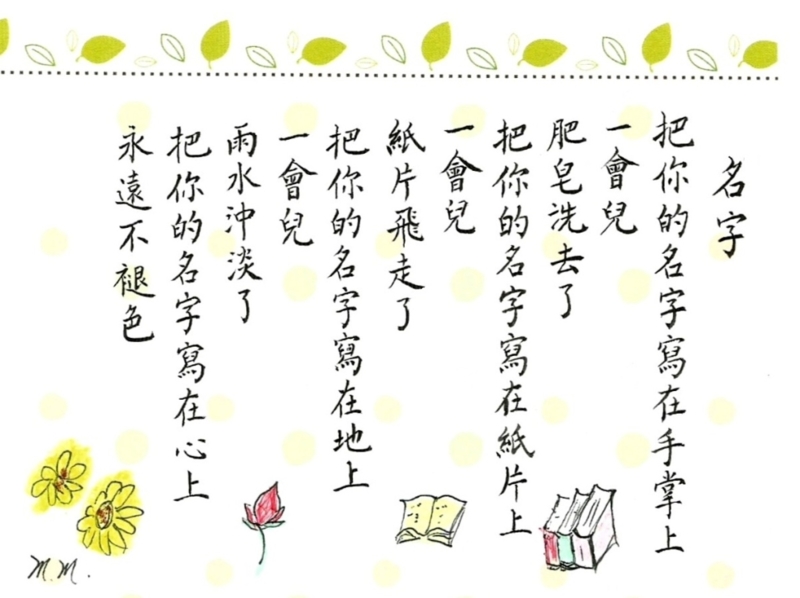 名字
把你的名字寫在手掌上
一會兒
肥皂洗去了
把你的名字寫在紙片上
一會兒
紙片飛走了
把你的名字寫在地上
一會兒
雨水沖淡了
把你的名字寫在心上
永遠不褪色
M.M.